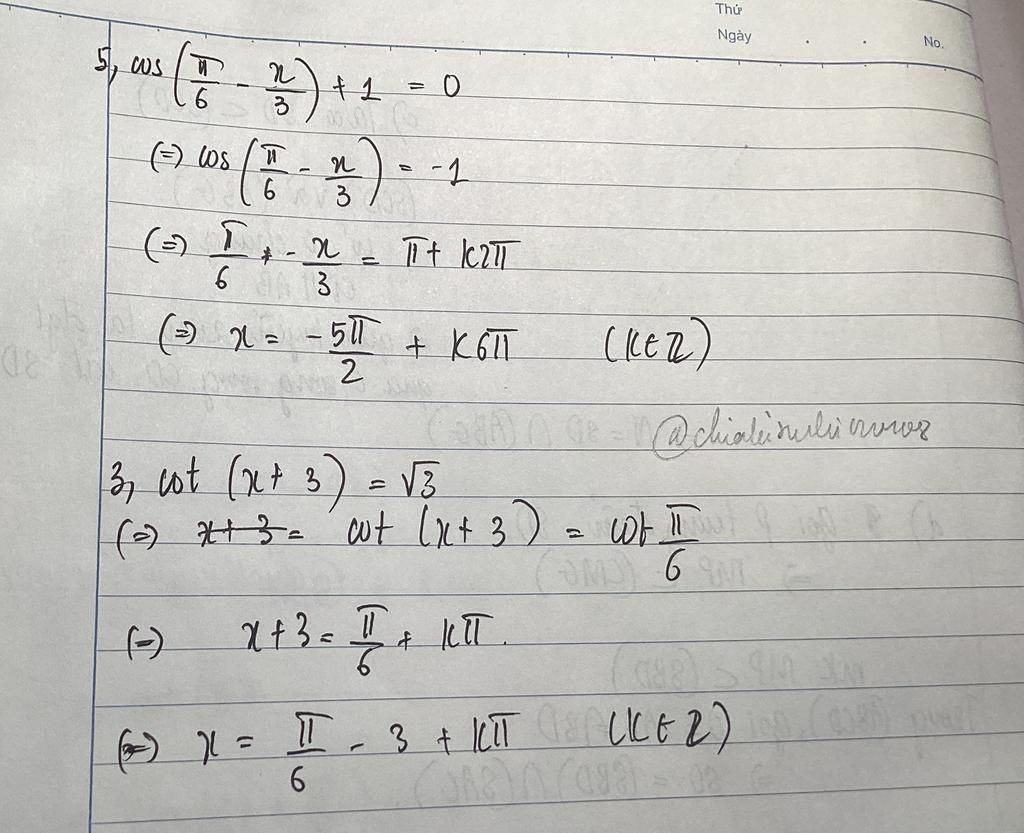 Thứ
Ngày . . No.
5, cos(π/6 - x/3) + 1 = 0
(=) cos(π/6 - x/3) = -1
(=) π/6 - x/3 = π + k2π
(=) x = -5π/2 + k6π (k∈Z)
3, cot (x + 3) = √3
(=) x+3 = cot (x + 3) = cot π/6
(=) x+3 = π/6 + kπ.
(=) x = π/6 - 3 + kπ (k∈Z)